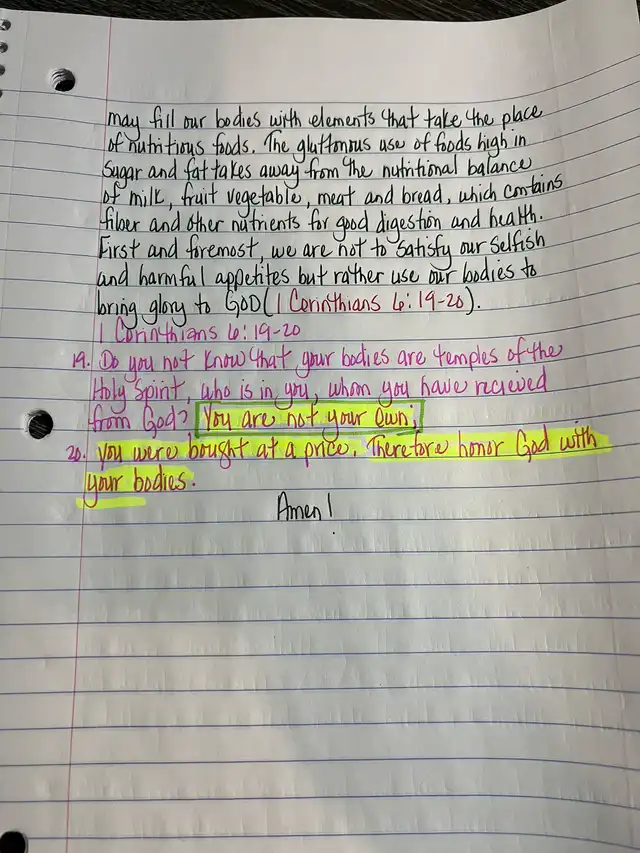 may fill our bodies with elements that take the place
of nutritious foods. The gluttonous use of foods high in
Sugar and fat takes away from the nutritional balance
of milk, fruit vegetable, meat and bread, which contains
fiber and other nutrients for good digestion and health.
First and foremost, we are not to satisfy our selfish
and harmful appetites but rather use our bodies to
bring glory to GOD (1 Corinthians 6:19-20).
1 Corinthians 6:19-20
19. Do you not know that your bodies are temples of the
Holy Spirit, who is in you, whom you have recieved
from God? You are not your own;
20. you were bought at a price. Therefore honor God with
your bodies.
Amen!